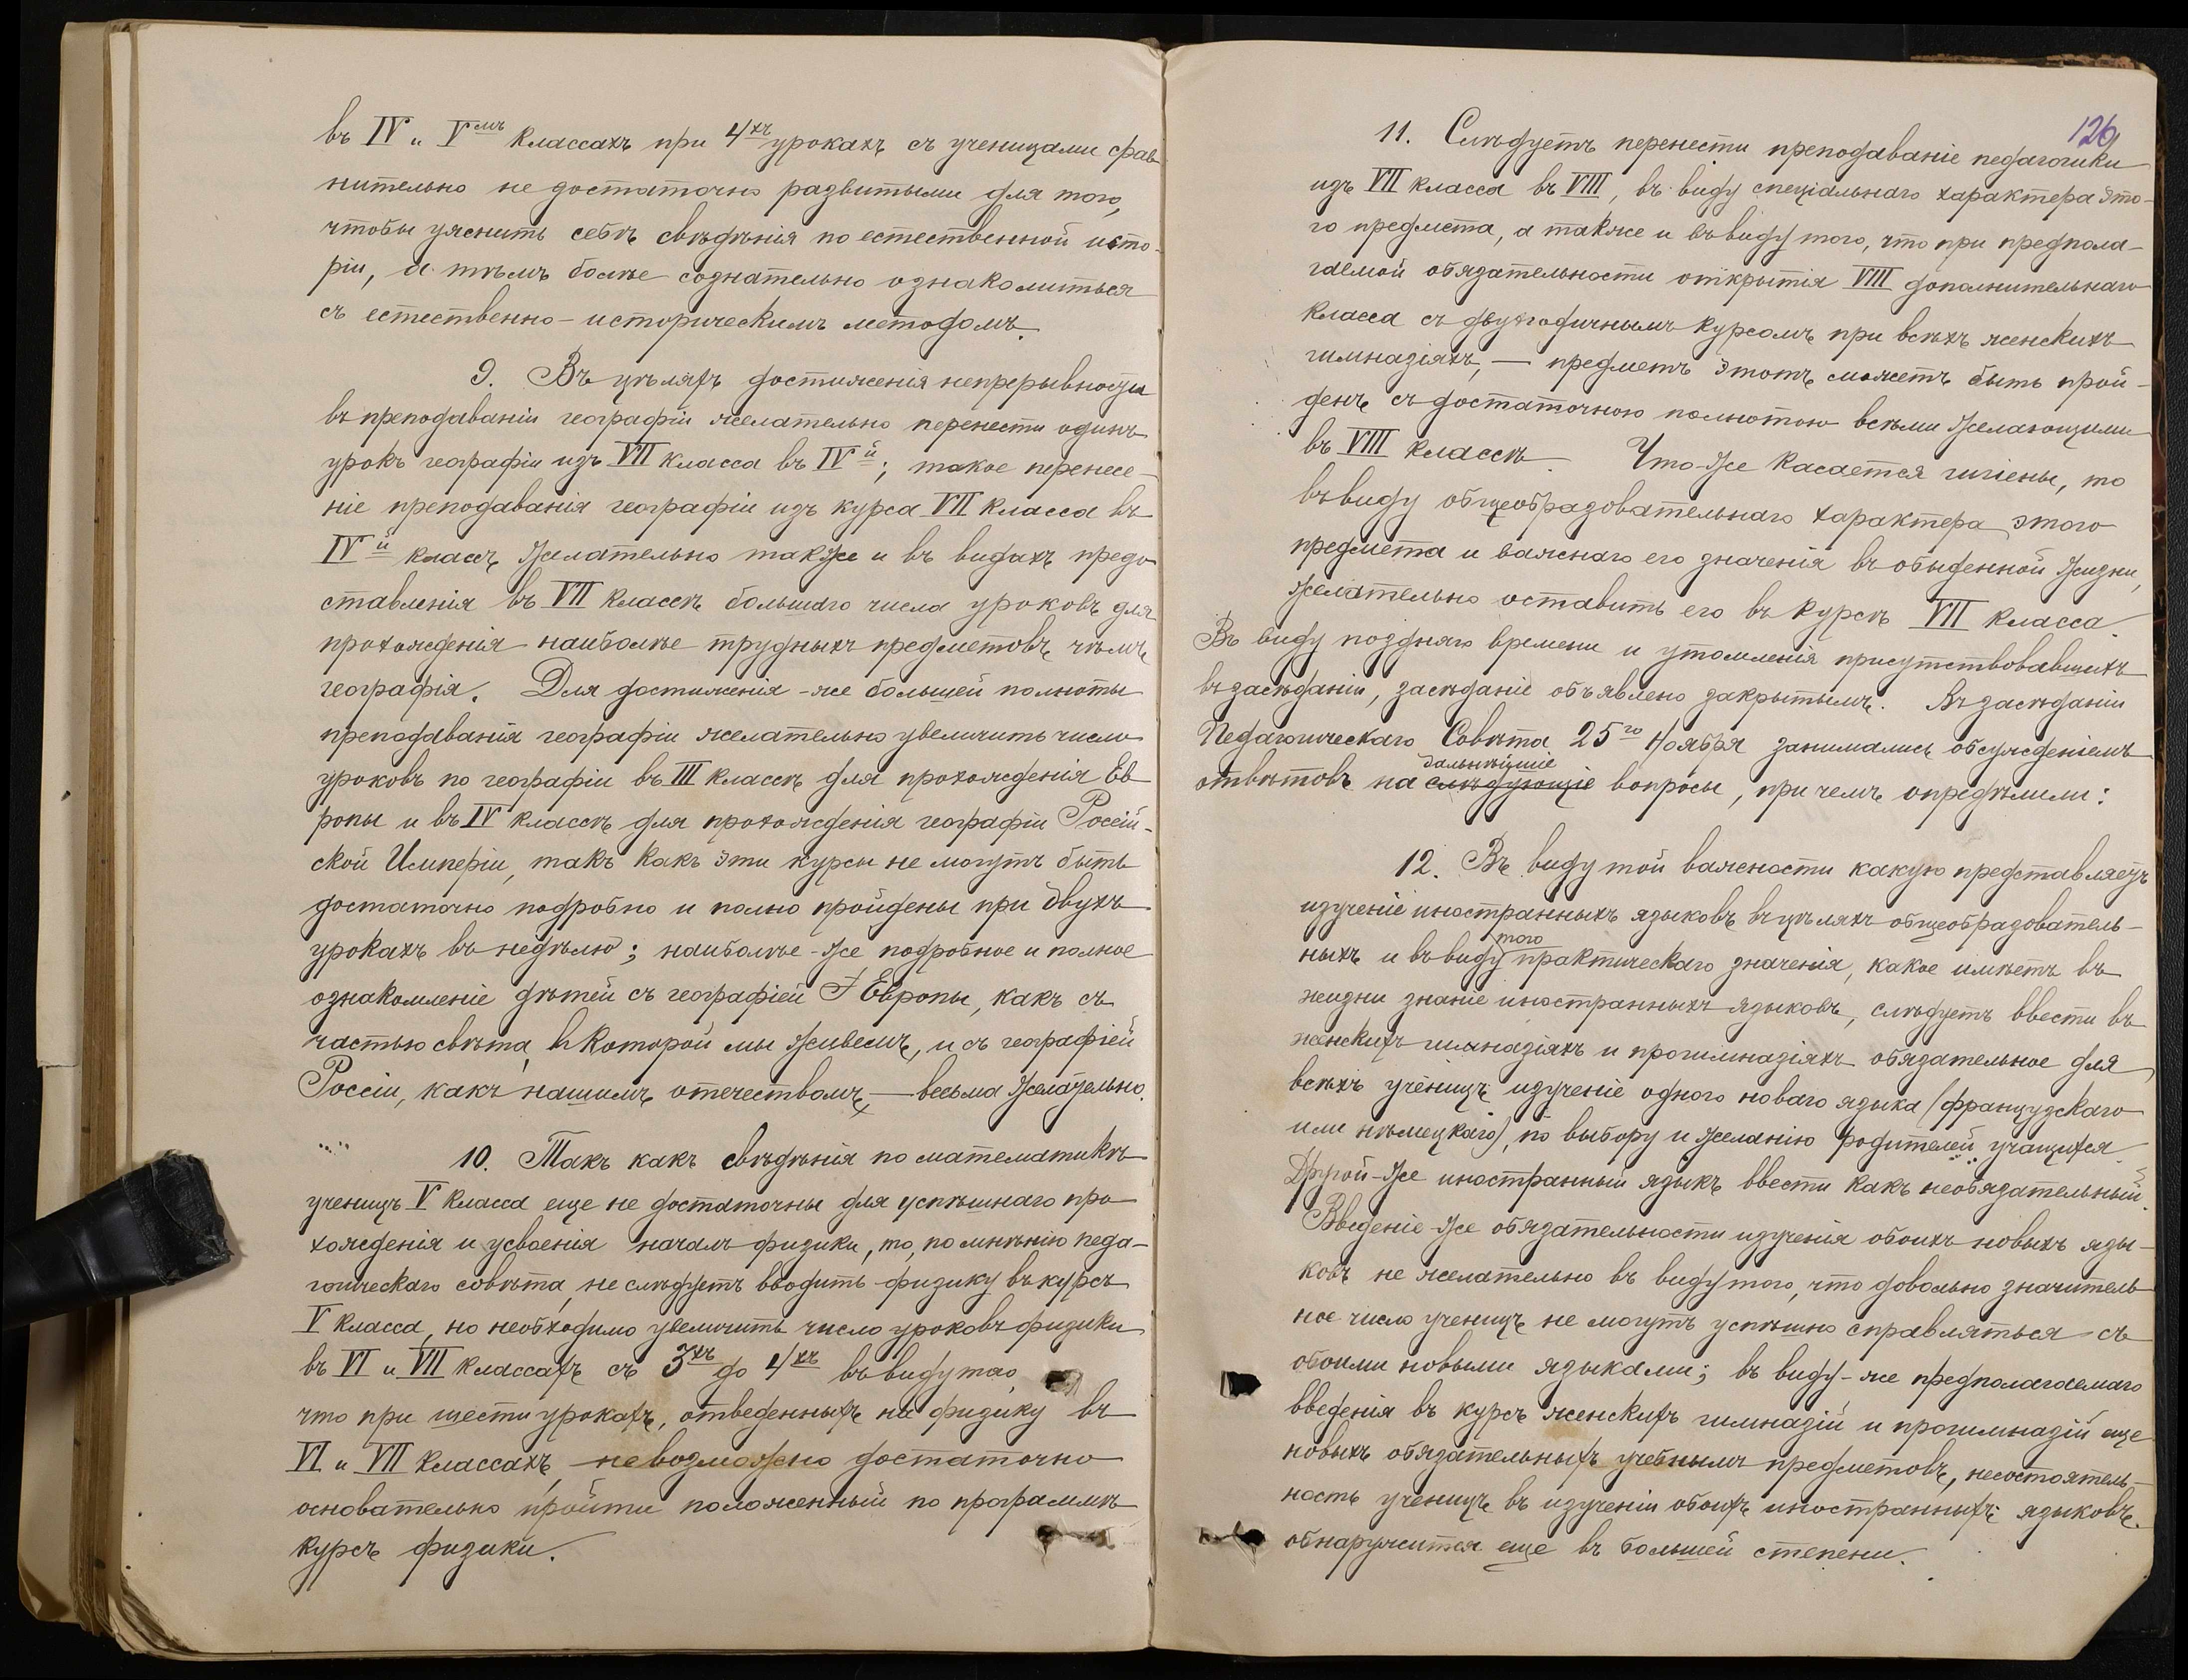 въ IV и V<sup>мъ</sup> классахъ при 4<sup>хъ</sup> урокахъ съ ученицами срав-
нительно не достаточно развитыми для того,
чтобы уяснить себѣ свѣдѣнія по естественной исто-
ріи, и тѣмъ болѣе сознательно ознакомиться
съ естественно-историческимъ методомъ.
9. Въ цѣляхъ достиженія непрерывности
въ преподаваніи географіи желательно перенести одинъ
урокъ географіи изъ VII класса въ IV<sup>й</sup>; такое перенесе-
ніе преподаванія географіи изъ курса VII класса въ
IV<sup>й</sup> классъ желательно также и въ видахъ предо-
ставленія въ VII классѣ большаго числа уроковъ для
прохожденія наиболѣе трудныхъ предметовъ, чѣмъ
географія. Для достиженія-же большей полноты
преподаванія географіи желательно увеличить число
уроковъ по географіи въ III классѣ для прохожденія Ев-
ропы и въ IV классѣ для прохожденія географіи Россій-
ской Имперіи, такъ какъ эти курсы не могутъ быть
достаточно подробно и полно пройдены при двухъ
урокахъ въ недѣлю; наиболѣе-же подробное и полное
ознакомленіе дѣтей съ географіей Европы, какъ съ
частью свѣта, въ которой мы живемъ, и съ географіей
Россіи, какъ нашимъ отечествомъ, — весьма желательно.
10. Такъ какъ свѣдѣнія по математикѣ
ученицъ V класса еще не достаточны для успѣшнаго про-
хожденія и усвоенія началъ физики, то, по мнѣнію педа-
гогическаго совѣта, не слѣдуетъ вводить физику въ курсъ
V класса, но необходимо увеличить число уроковъ физики
въ VI и VII классахъ съ 3<sup>хъ</sup> до 4<sup>хъ</sup> въ виду того,
что при шести урокахъ, отведенныхъ на физику въ
VI и VII классахъ, невозможно достаточно
основательно пройти положенный по программѣ
курсъ физики.
126
11. Слѣдуетъ перенести преподаваніе педагогики
изъ VII класса въ VIII, въ виду спеціальнаго характера это-
го предмета, а также и въ виду того, что при предпола-
гаемой обязательности открытія VIII дополнительнаго
класса съ двухгодичнымъ курсомъ при всѣхъ женскихъ
гимназіяхъ, — предметъ этотъ сможетъ быть прой-
денъ съ достаточною полнотою всѣми желающими
въ VIII классѣ. Что-же касается гигіены, то
въ виду общеобразовательнаго характера этого
предмета и важнаго его значенія въ обыденной жизни,
желательно оставить его въ курсѣ VII класса.
Въ виду поздняго времени и утомленія присутствовавшихъ
въ засѣданіи, засѣданіе объявлено закрытымъ. Въ засѣданіи
Педагогическаго Совѣта 25<sup>го</sup> Ноября занимались обсужденіемъ
дальнѣйшіе
отвѣтовъ на слѣдующіе вопросы, при чемъ опредѣлили:
12. Въ виду той важности какую представляетъ
изученіе иностранныхъ языковъ въ цѣляхъ общеобразователь-
того
ныхъ и въ виду практическаго значенія, какое имѣетъ въ
жизни знаніе иностранныхъ языковъ, слѣдуетъ ввести въ
женскихъ гимназіяхъ и прогимназіяхъ обязательное для
всѣхъ ученицъ изученіе одного новаго языка (французскаго
или нѣмецкаго), по выбору и желанію родителей учащихся.
Другой-же иностранный языкъ ввести какъ необязательный.
Введеніе-же обязательности изученія обоихъ новыхъ язы-
ковъ не желательно въ виду того, что довольно значитель-
ное число ученицъ не могутъ успѣшно справляться съ
обоими новыми языками; въ виду-же предполагаемаго
введенія въ курсъ женскихъ гимназій и прогимназій еще
новыхъ обязательныхъ учебнымъ предметовъ, несостоятель-
ность ученицъ въ изученіи обоихъ иностранныхъ языковъ
обнаружится еще въ большей степени.